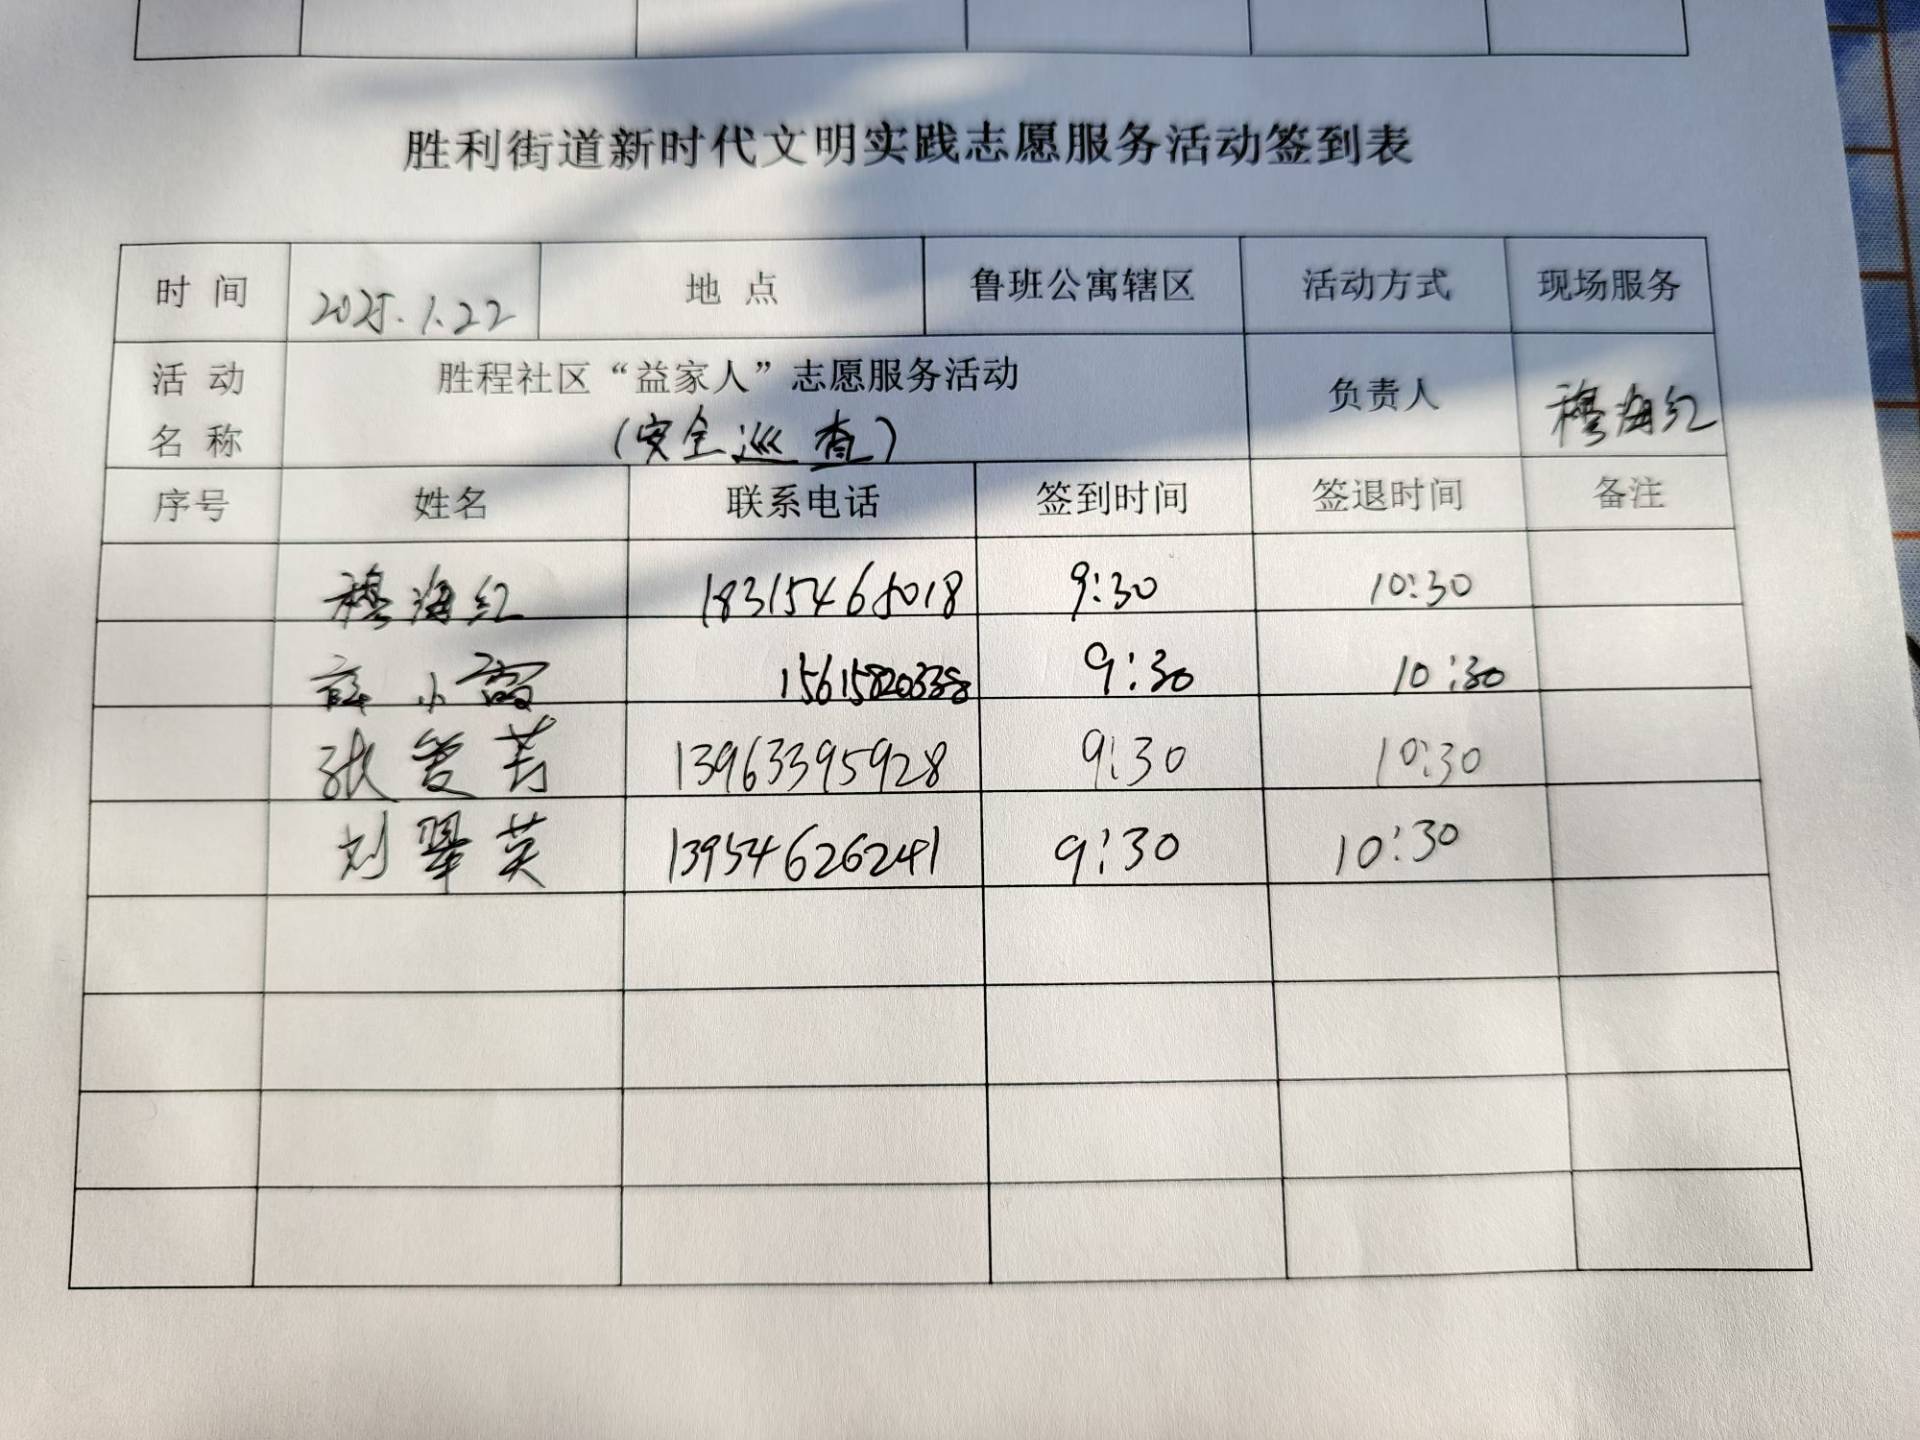 胜利街道新时代文明实践志愿服务活动签到表
时 间 2025.1.22 地 点 鲁班公寓辖区 活动方式 现场服务
活 动 名 称 胜程社区“益家人”志愿服务活动 负责人 穆海红
(安全巡查)
序号 姓名 联系电话 签到时间 签退时间 备注
穆海红 9:30 10:30
薛小霞 9:30 10:30
张爱芳 13963395928 9:30 10:30
刘翠英 13954626241 9:30 10:30